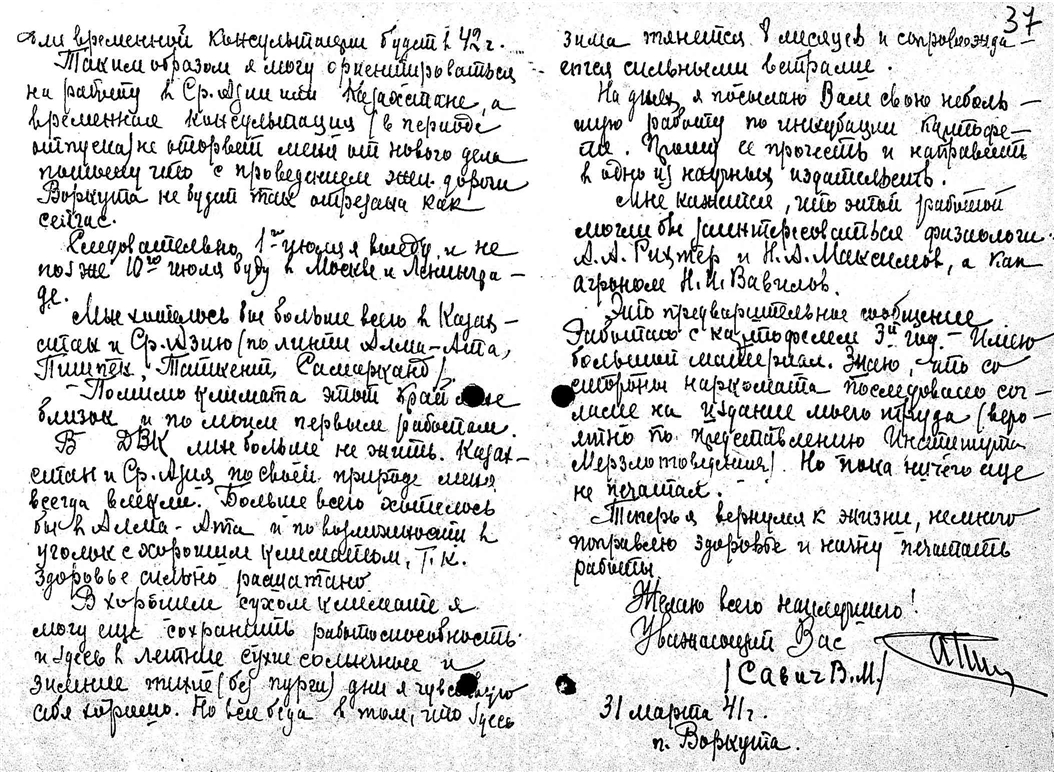 для временной консультации будет в 42 г.
Таким образом я могу ориентироваться
на работу в Ср. Азии или Казахстане, а
временная консультация (в периоде
отпуска) не оторвет меня от нового дела
потому что с проведением жел. дороги
Воркута не будет так отрезана как
сейчас.
Следовательно, 1го июля я выеду и не
позже 10го июля буду в Москве и Ленингра-
де.
Мне хотелось бы больше всего в Казах-
стан и Ср. Азию (по линии Алма-Ата,
Пишпек, Ташкент, Самарканд).
Помимо климата этот край мне
близок и по моим первым работам.
В ДВК мне больше не жить. Казах-
стан и Ср. Азия по своей природе меня
всегда влекли. Больше всего хотелось
бы в Алма-Ата и по возможности в
уголык с хорошим климатом, т.к.
здоровье сильно расшатано
В хорошем сухом климате я
могу еще сохранить работоспособность
и здесь в летние сухие солнечные и
зимние тихие (без пурги) дни я чувствую
себя хорошо. Но вся беда в том, что здесь
37
зима тянется 8 месяцев и сопровожда-
ется сильными ветрами.
На днях я посылаю Вам свою неболь-
шую работу по инкубации картофе-
ля. Прошу ее прочесть и направить
в одно из научных издательств.
Мне кажется, что этой работой
могли бы заинтересоваться физиологи
А.А. Рихтер и Н.А. Максимов, а как
агроном Н.И. Вавилов.
Это предварительное сообщение
Работаю с картофелем 3й год. Имею
большой материал. Знаю, что со
стороны наркомата последовало сог-
ласие на издание моего труда (веро-
ятно по представлению Института
Мерзлотоведения). Но пока ничего еще
не печатал.
Теперь я вернулся к жизни, немного
поправлю здоровье и начну печатать
работы
Желаю всего наилучшего!
Уважающий Вас
(Савич В.М.)
31 марта 41 г.
п. Воркута.